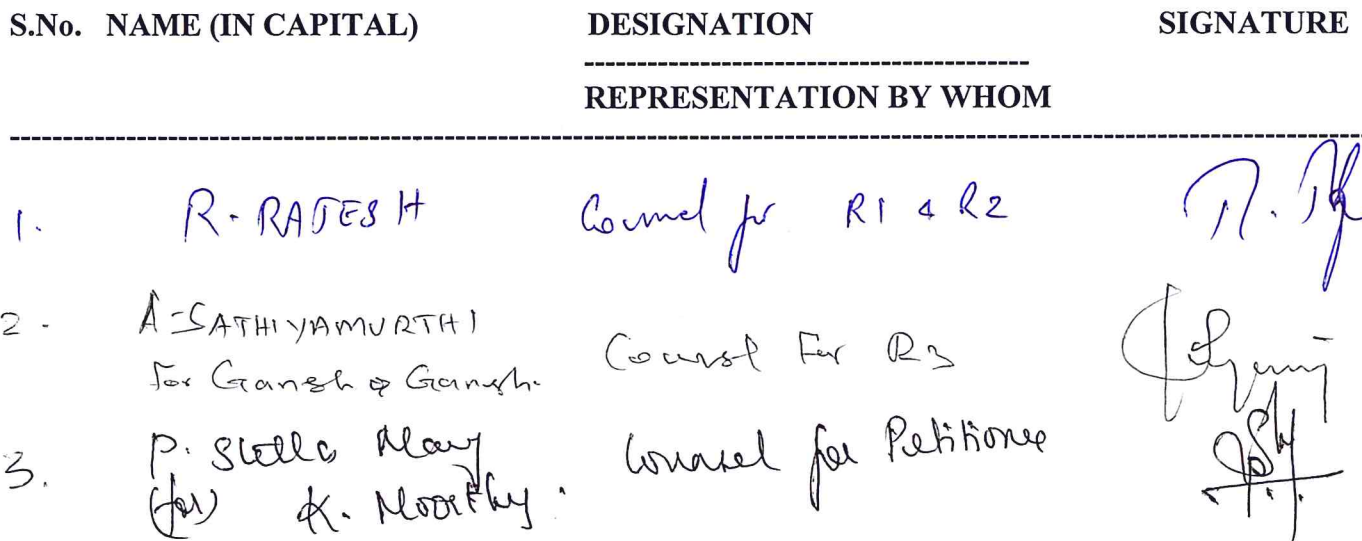 S.No. NAME (IN CAPITAL) DESIGNATION SIGNATURE
REPRESENTATION BY WHOM
1. R. RAJESH Counsel for R1 & R2
2. A. SATHIYAMURTHI
for Ganesh & Ganesh. Counsel For R3
3. P. Stella Mary Counsel for Petitioner
(for) K. Moorthy.